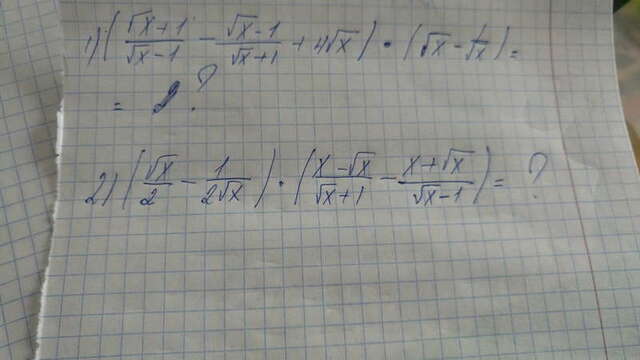 1) ( (√x + 1)/(√x - 1) - (√x - 1)/(√x + 1) + 4√x ) • ( √x - 1/√x ) =
= ?
2) ( √x/2 - 1/(2√x) ) • ( (x - √x)/(√x + 1) - (x + √x)/(√x - 1) ) = ?